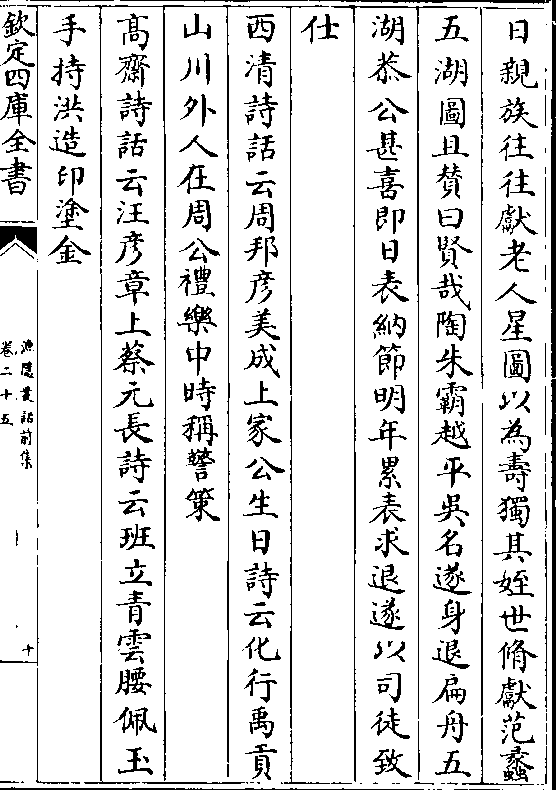 日親族往往獻老人星圖以為壽獨其姪世脩獻范蠡
五湖圖且贊曰賢哉陶朱霸越平吳名遂身退扁舟五
湖恭公甚喜即日表納節明年累表求退遂以司徒致
仕
西清詩話云周邦彥美成上家公生日詩云化行禹貢
山川外人在周公禮樂中時稱警策
髙齋詩話云汪彥章上蔡元長詩云班立青雲腰佩玉
手持洪造印塗金
欽定四庫全書
漁隱叢話前集
卷二十五
十